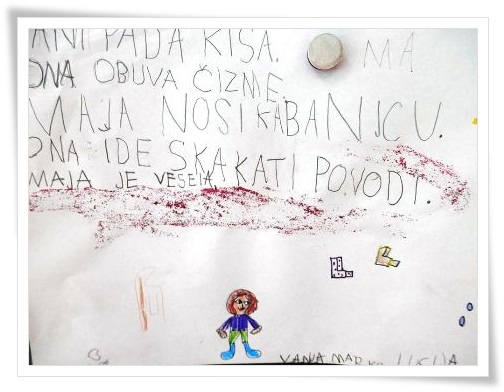 VANI PADA KIŠA. MA
ONA OBUVA ČIZME.
MAJA NOSI KABANICU.
ONA IDE SKAKATI PO VODI.
MAJA JE VESELA.
VANJA MARKO LUCIJA